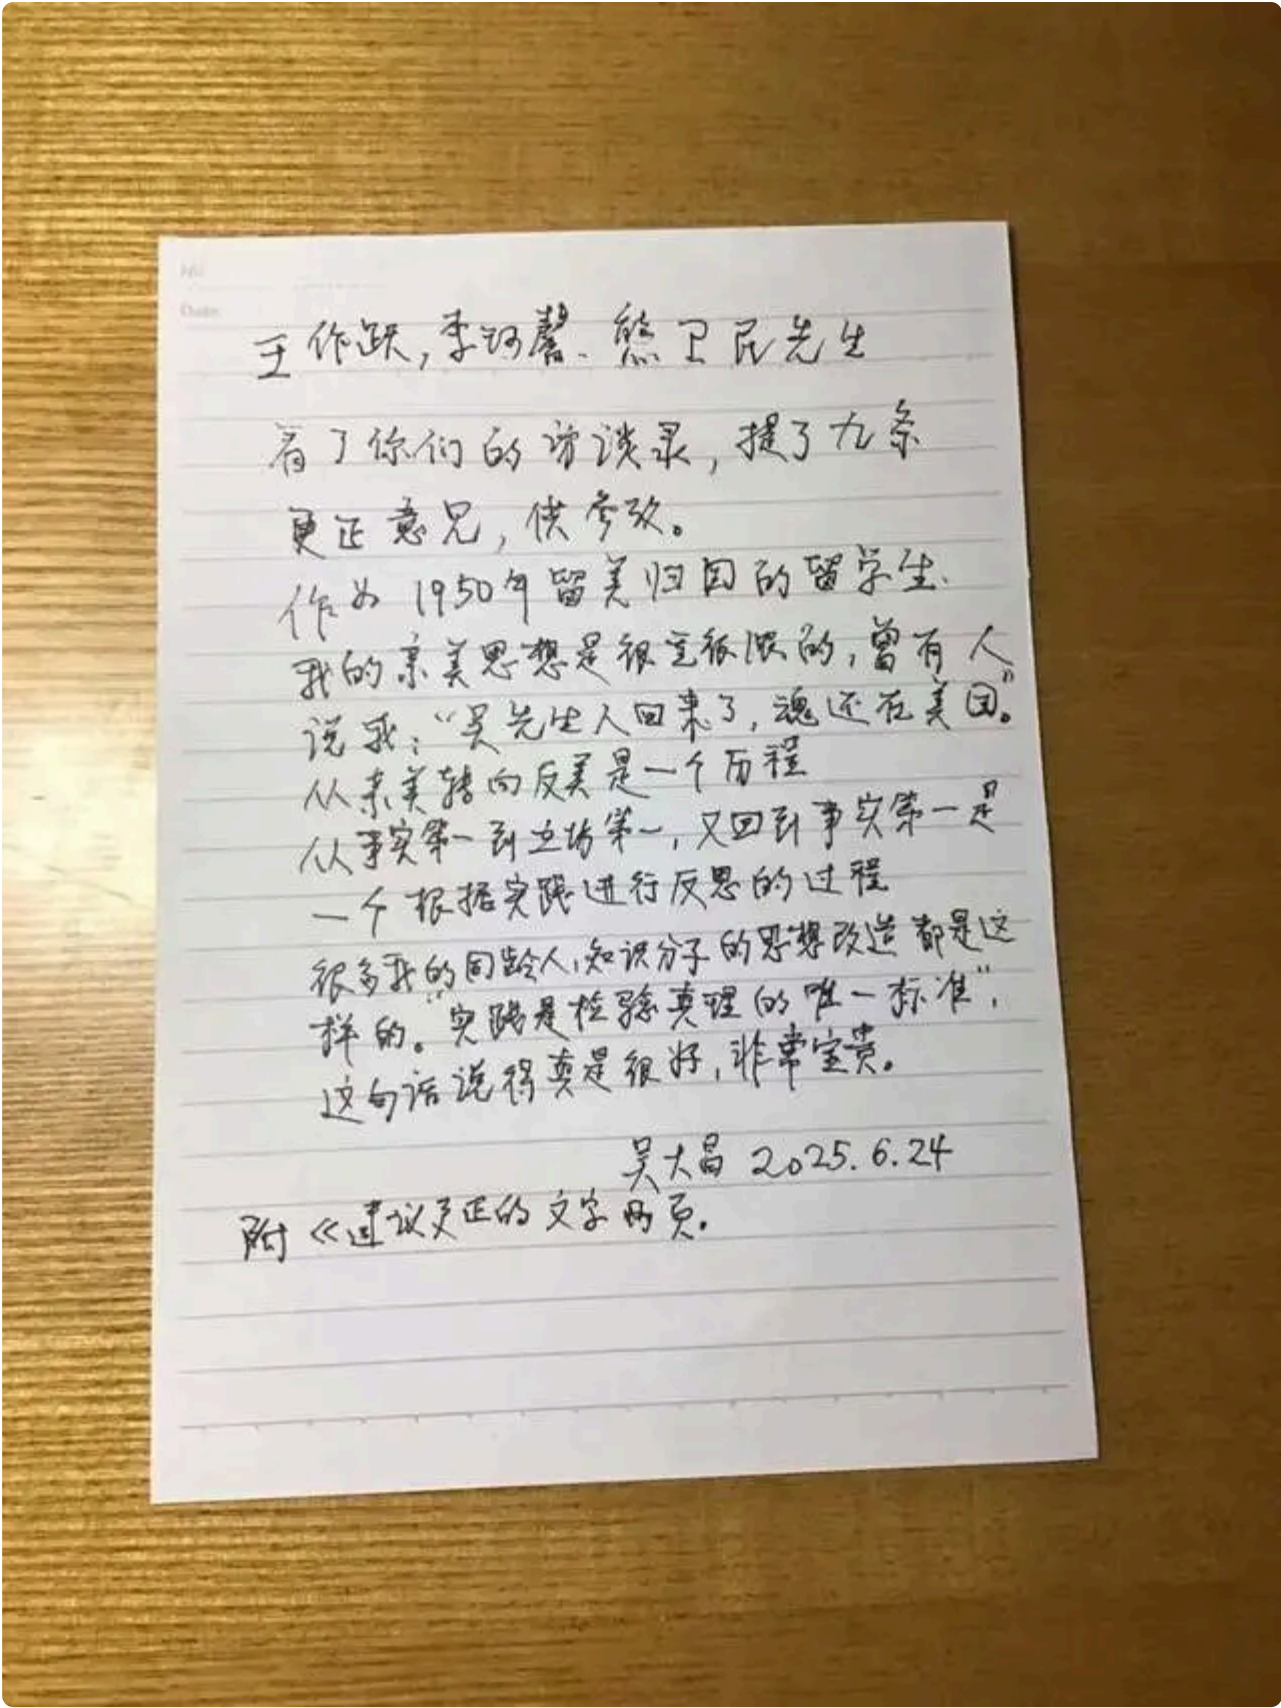 No.
Date
王作跃,李珂馨、熊卫民先生
看了你们的访谈录,提了九条
更正意见,供参改。
作为1950年留美归国的留学生、
我的亲美思想是很重很浓的,曾有人
说我:“吴先生人回来了,魂还在美国”。
从亲美转向反美是一个历程
从事实第一到立场第一,又回到事实第一是
一个根据实践进行反思的过程
很多我的同龄人,知识分子的思想改造都是这
样的。“实践是检验真理的唯一标准”,
这句话说得真是很好,非常宝贵。
吴大昌 2025.6.24
附《建议更正的文字两页。